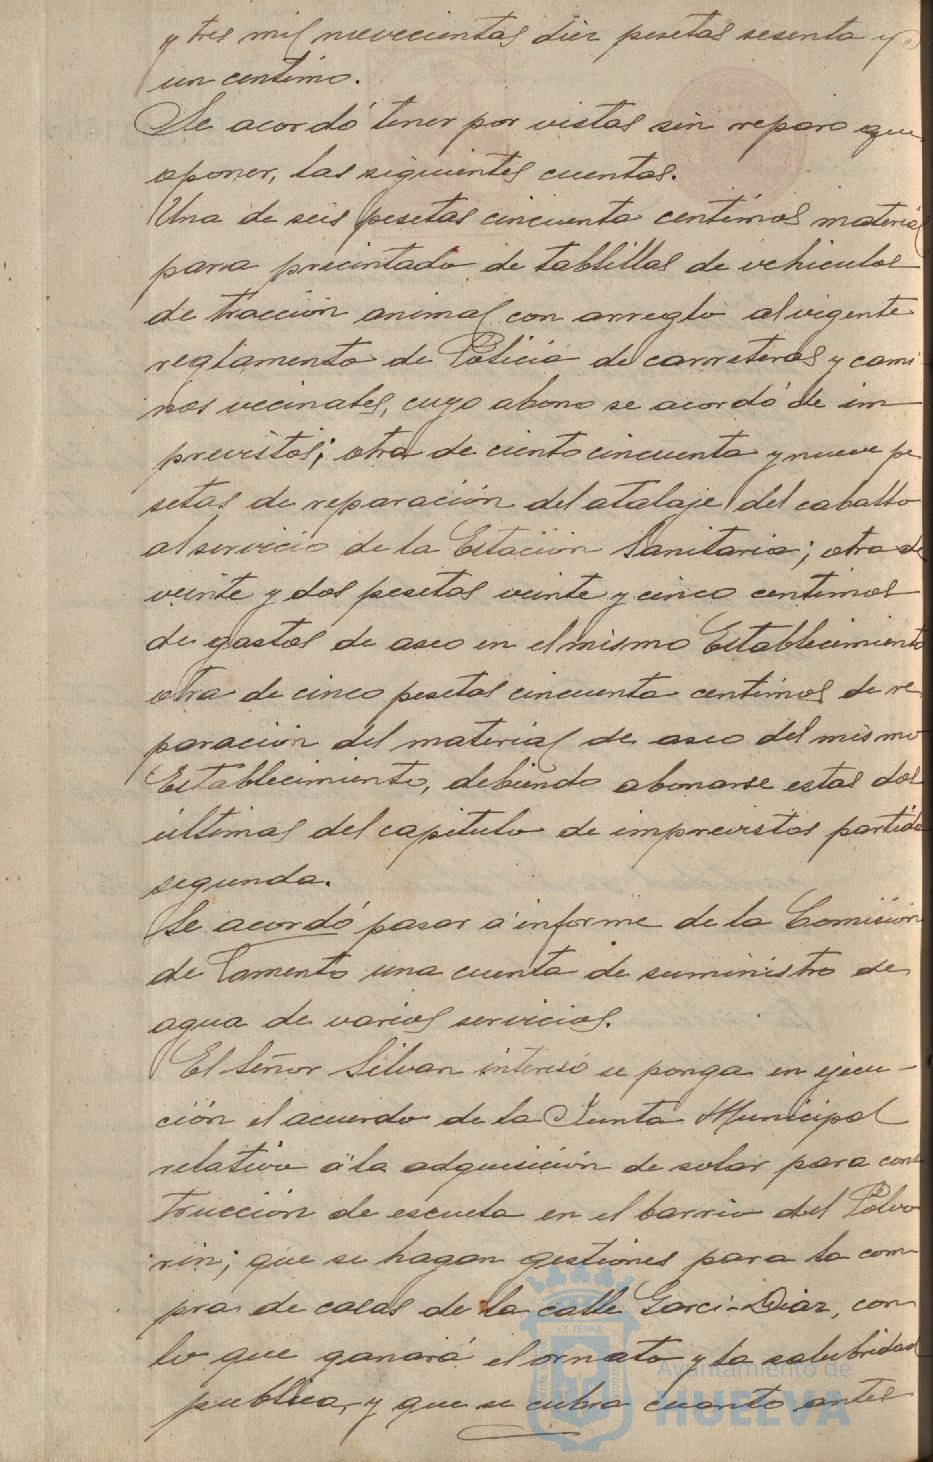 y tres mil nuevecientas diez pesetas sesenta y
un centimo.
Se acordó tener por vistas sin reparo que
oponer, las siguientes cuentas.
Una de seis pesetas cincuenta centimos material
para precintado de tablillas de vehiculos
de tracción animal con arreglo al vigente
reglamento de Policia de carreteras y cami
nos vecinales, cuyo abono se acordó de im
previstos; otra de ciento cincuenta y nueve pe
setas de reparación del atalaje del caballo
al servicio de la Estación Sanitaria; otra de
veinte y dos pesetas veinte y cinco centimos
de gastos de aseo en el mismo Establecimiento
otra de cinco pesetas cincuenta centimos de re
paración del material de aseo del mismo
Establecimiento, debiendo abonarse estas dos
ultimas del capitulo de imprevistos partida
segunda.
Se acordó pasar á informe de la Comisión
de Fomento una cuenta de suministro de
agua de varios servicios.
El Señor Silvan interesó se ponga en ejecu-
ción el acuerdo de la Junta Municipal
relativo á la adquisición de solar para cons
trucción de escuela en el barrio del Polvo
rin; que se hagan gestiones para la com
pra de casas de la calle Garci-Diaz, con
lo que ganará el ornato y la salubridad
publica, y que se cubra cuanto antes
Ayuntamiento de
HUELVA